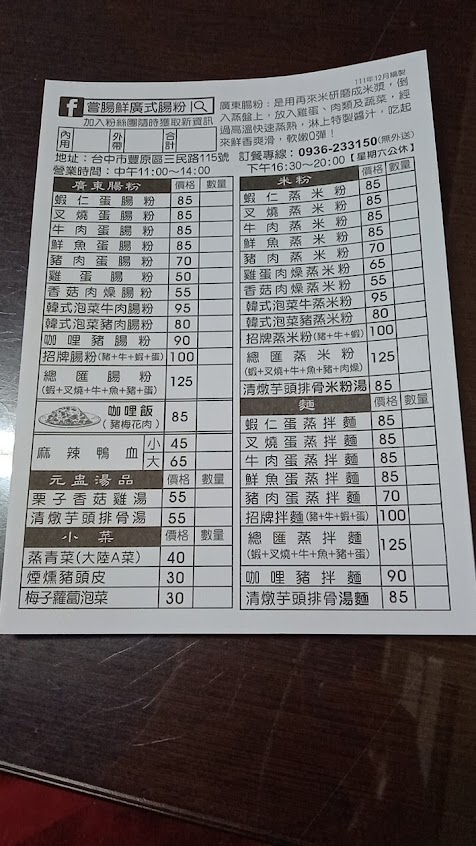 111年12月編製
f 嘗腸鮮廣式腸粉
加入粉絲團隨時獲取新資訊
內用 外帶 合計
廣東腸粉：是用再來米研磨成米漿，倒
入蒸盤上，放入雞蛋、肉類及蔬菜，經
過高溫快速蒸熟，淋上特製醬汁，吃起
來鮮香爽滑，軟嫩Q彈！
地址：台中市豐原區三民路115號
訂餐專線：0936-233150(無外送)
營業時間：中午11:00～14:00
下午16:30～20:00【星期六公休】
廣東腸粉 價格 數量
蝦仁蛋腸粉 85
叉燒蛋腸粉 85
牛肉蛋腸粉 85
鮮魚蛋腸粉 85
豬肉蛋腸粉 70
雞蛋腸粉 50
香菇肉燥腸粉 55
韓式泡菜牛肉腸粉 95
韓式泡菜豬腸粉 80
咖哩豬腸粉 90
招牌腸粉(豬+牛+蝦+蛋) 100
總匯腸粉 125
(蝦+叉燒+牛+魚+豬+蛋)
咖哩飯 85
(豬梅花肉)
麻辣鴨血 小 45
大 65
元盅湯品 價格 數量
栗子香菇雞湯 55
清燉芋頭排骨湯 55
小菜 價格 數量
蒸青菜(大陸A菜) 40
煙燻豬頭皮 30
梅子蘿蔔泡菜 30
米粉 價格 數量
蝦仁蒸米粉 85
叉燒蒸米粉 85
牛肉蒸米粉 85
鮮魚蒸米粉 85
豬肉蒸米粉 70
雞蛋肉燥蒸米粉 65
香菇肉燥蒸米粉 55
韓式泡菜牛蒸米粉 95
韓式泡菜豬蒸米粉 80
招牌蒸米粉(豬+牛+蝦) 100
總匯蒸米粉 125
(蝦+叉燒+牛+魚+豬+肉燥)
清燉芋頭排骨米粉湯 85
麵 價格 數量
蝦仁蛋蒸拌麵 85
叉燒蛋蒸拌麵 85
牛肉蛋蒸拌麵 85
鮮魚蛋蒸拌麵 85
豬肉蛋蒸拌麵 70
招牌拌麵(豬+牛+蝦+蛋) 100
總匯蒸拌麵 125
(蝦+叉燒+牛+魚+豬+蛋)
咖哩豬拌麵 90
清燉芋頭排骨湯麵 85